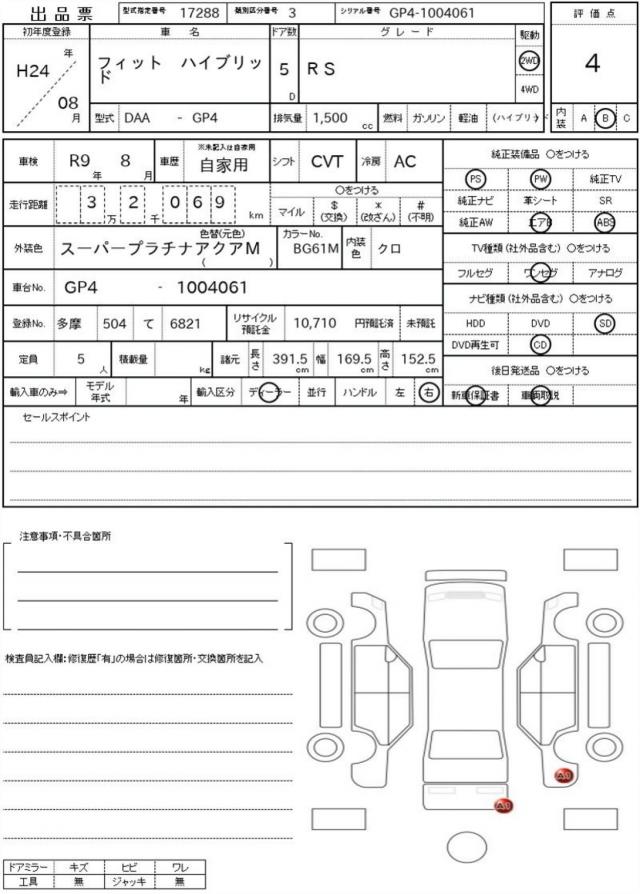 出品票 型式指定番号 17288 類別区分番号 3 シリアル番号 GP4-1004061
評価点
初年度登録 車名 ドア数 グレード 駆動
H24 年 フィット ハイブリッ
ド 5 D RS 2WD 4
08 月 4WD
型式 DAA - GP4 排気量 1,500 cc 燃料 ガソリン 軽油 (ハイブリッド 内装 A B C
車検 R9 年 8 月 車歴 ※未記入は自家用 自家用 シフト CVT 冷房 AC
走行距離 3 万 2 千 0 6 9 km
〇をつける
マイル $ (交換) * (改ざん) # (不明)
外装色 色替(元色) スーパープラチナアクアM ( ) カラーNo. BG61M 内装色 クロ
車台No. GP4 - 1004061
登録No. 多摩 504 て 6821 リサイクル預託金 10,710 円預託済 未預託
定員 5 人 積載量 kg 諸元 長さ 391.5 cm 幅 169.5 cm 高さ 152.5 cm
輸入車のみ⇒ モデル年式 年 輸入区分 ディーラー 並行 ハンドル 左 右
純正装備品 〇をつける
PS PW 純正TV
純正ナビ 革シート SR
純正AW エアB ABS
TV種類(社外品含む) 〇をつける
フルセグ ワンセグ アナログ
ナビ種類(社外品含む) 〇をつける
HDD DVD SD
DVD再生可 CD
後日発送品 〇をつける
新車保証書 車両取説
セールスポイント
注意事項・不具合箇所
検査員記入欄:修復歴「有」の場合は修復箇所・交換箇所を記入
A1
A1
ドアミラー キズ ヒビ ワレ
工具 無 ジャッキ 無